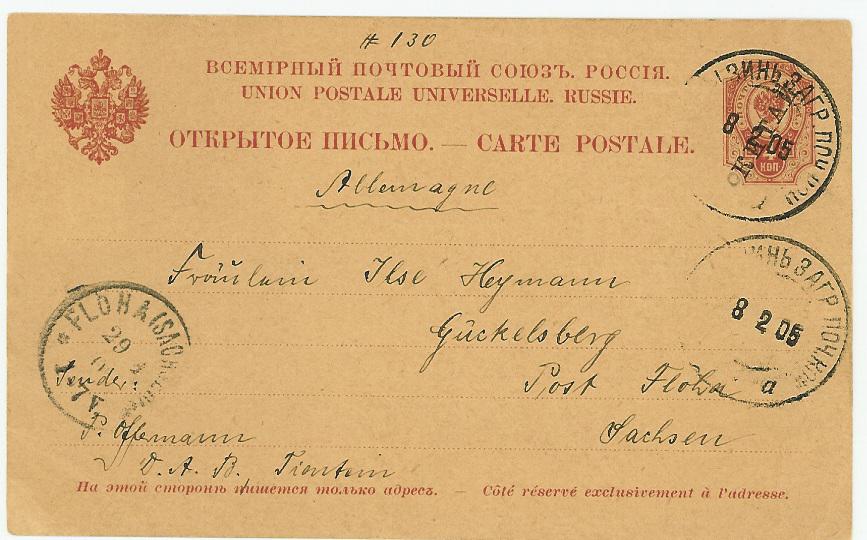 # 130
ВСЕМІРНЫЙ ПОЧТОВЫЙ СОЮЗЪ. РОССІЯ.
UNION POSTALE UNIVERSELLE. RUSSIE.
ОТКРЫТОЕ ПИСЬМО. — CARTE POSTALE.
4 КОП
ЗИНЬ ЗАГР ПОЧ
8 2 05
КИТАЙ
Allemagne
Fräulein Ilse Heymann
Gückelsberg
Post Flöha
Sachsen
ЗИНЬ ЗАГР ПОЧ
8 2 05
а
* FLÖHA (SACH
29
7 V
Sender:
P. Offermann
D. A. B. Tientsin
На этой сторонѣ пишется только адресъ. — Côté réservé exclusivement à l'adresse.